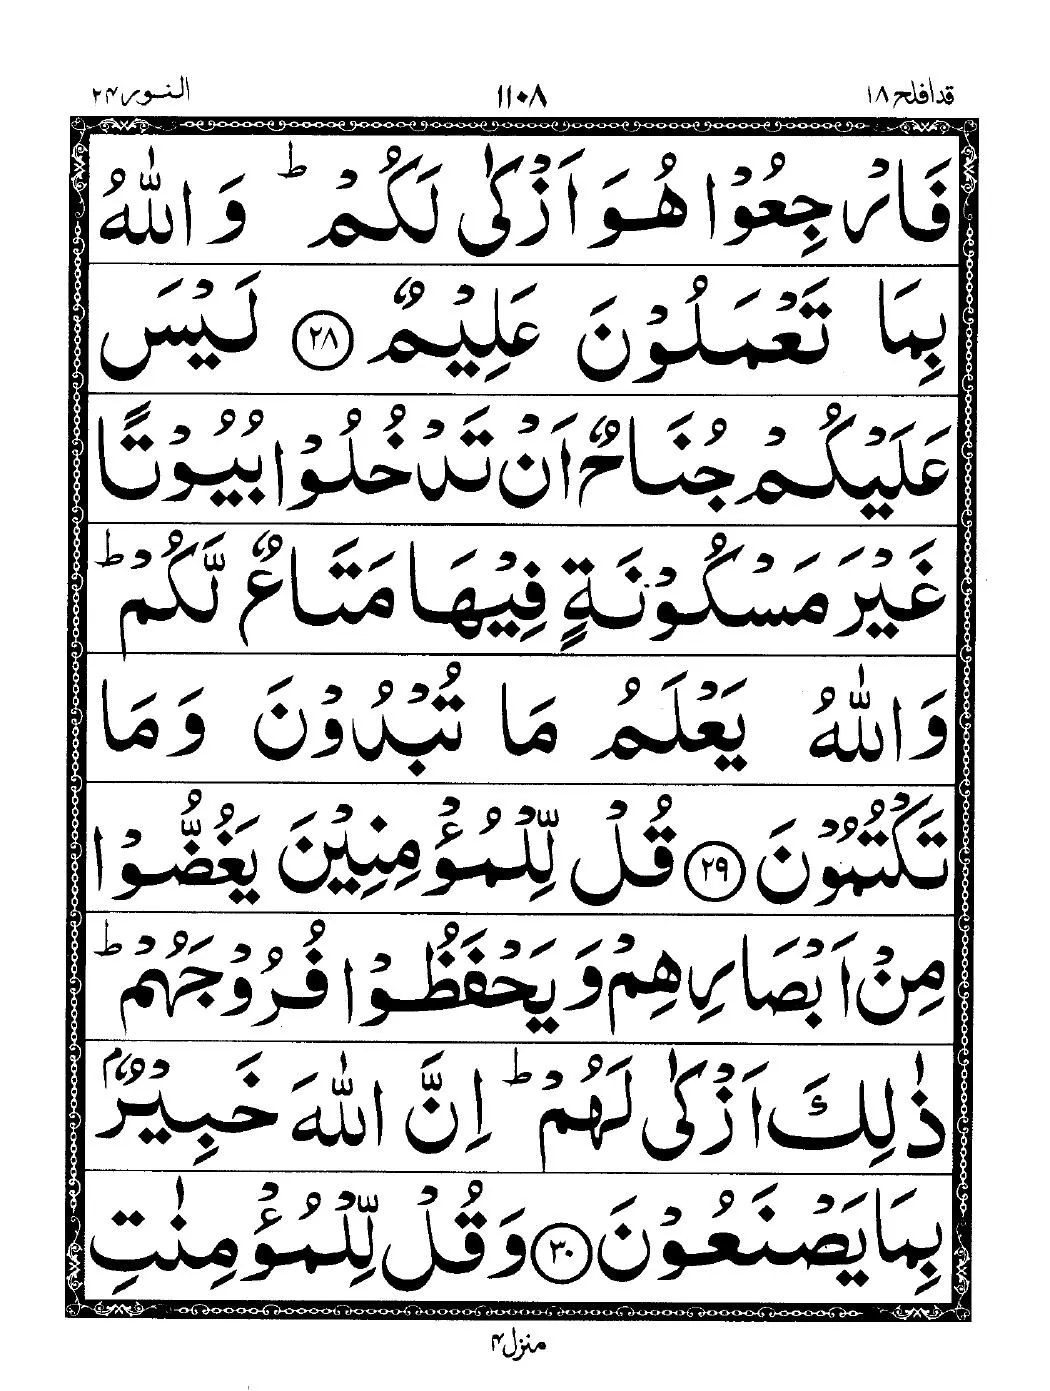 قد افلح ۱۸ ۱۱۰۸ النور ۲۴
فَارْجِعُوْا هُوَ اَزْكٰى لَكُمْ ؕ وَاللّٰهُ
بِمَا تَعْمَلُوْنَ عَلِيْمٌ ﴿۲۸﴾ لَيْسَ
عَلَيْكُمْ جُنَاحٌ اَنْ تَدْخُلُوْا بُيُوْتًا
غَيْرَ مَسْكُوْنَةٍ فِيْهَا مَتَاعٌ لَّكُمْ ؕ
وَاللّٰهُ يَعْلَمُ مَا تُبْدُوْنَ وَمَا
تَكْتُمُوْنَ ﴿۲۹﴾ قُلْ لِّلْمُؤْمِنِيْنَ يَغُضُّوْا
مِنْ اَبْصَارِهِمْ وَيَحْفَظُوْا فُرُوْجَهُمْ ؕ
ذٰلِكَ اَزْكٰى لَهُمْ ؕ اِنَّ اللّٰهَ خَبِيْرٌۢ
بِمَا يَصْنَعُوْنَ ﴿۳۰﴾ وَقُلْ لِّلْمُؤْمِنٰتِ
منزل ۴